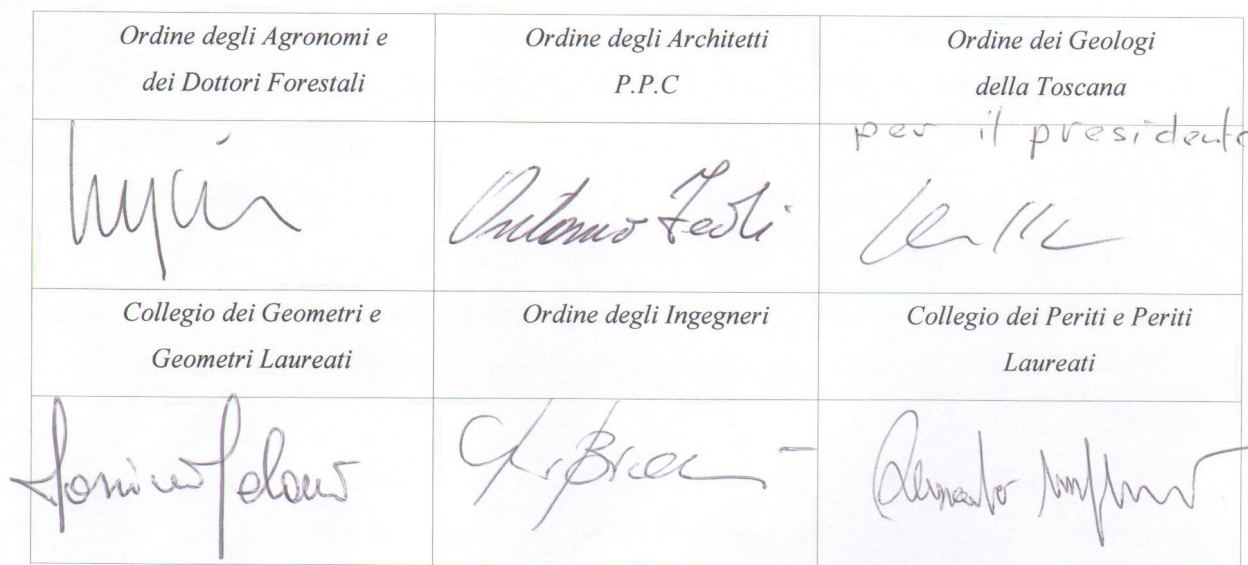 Ordine degli Agronomi e
dei Dottori Forestali
Ordine degli Architetti
P.P.C
Ordine dei Geologi
della Toscana
per il presidente
Antonio
Collegio dei Geometri e
Geometri Laureati
Ordine degli Ingegneri
Collegio dei Periti e Periti
Laureati